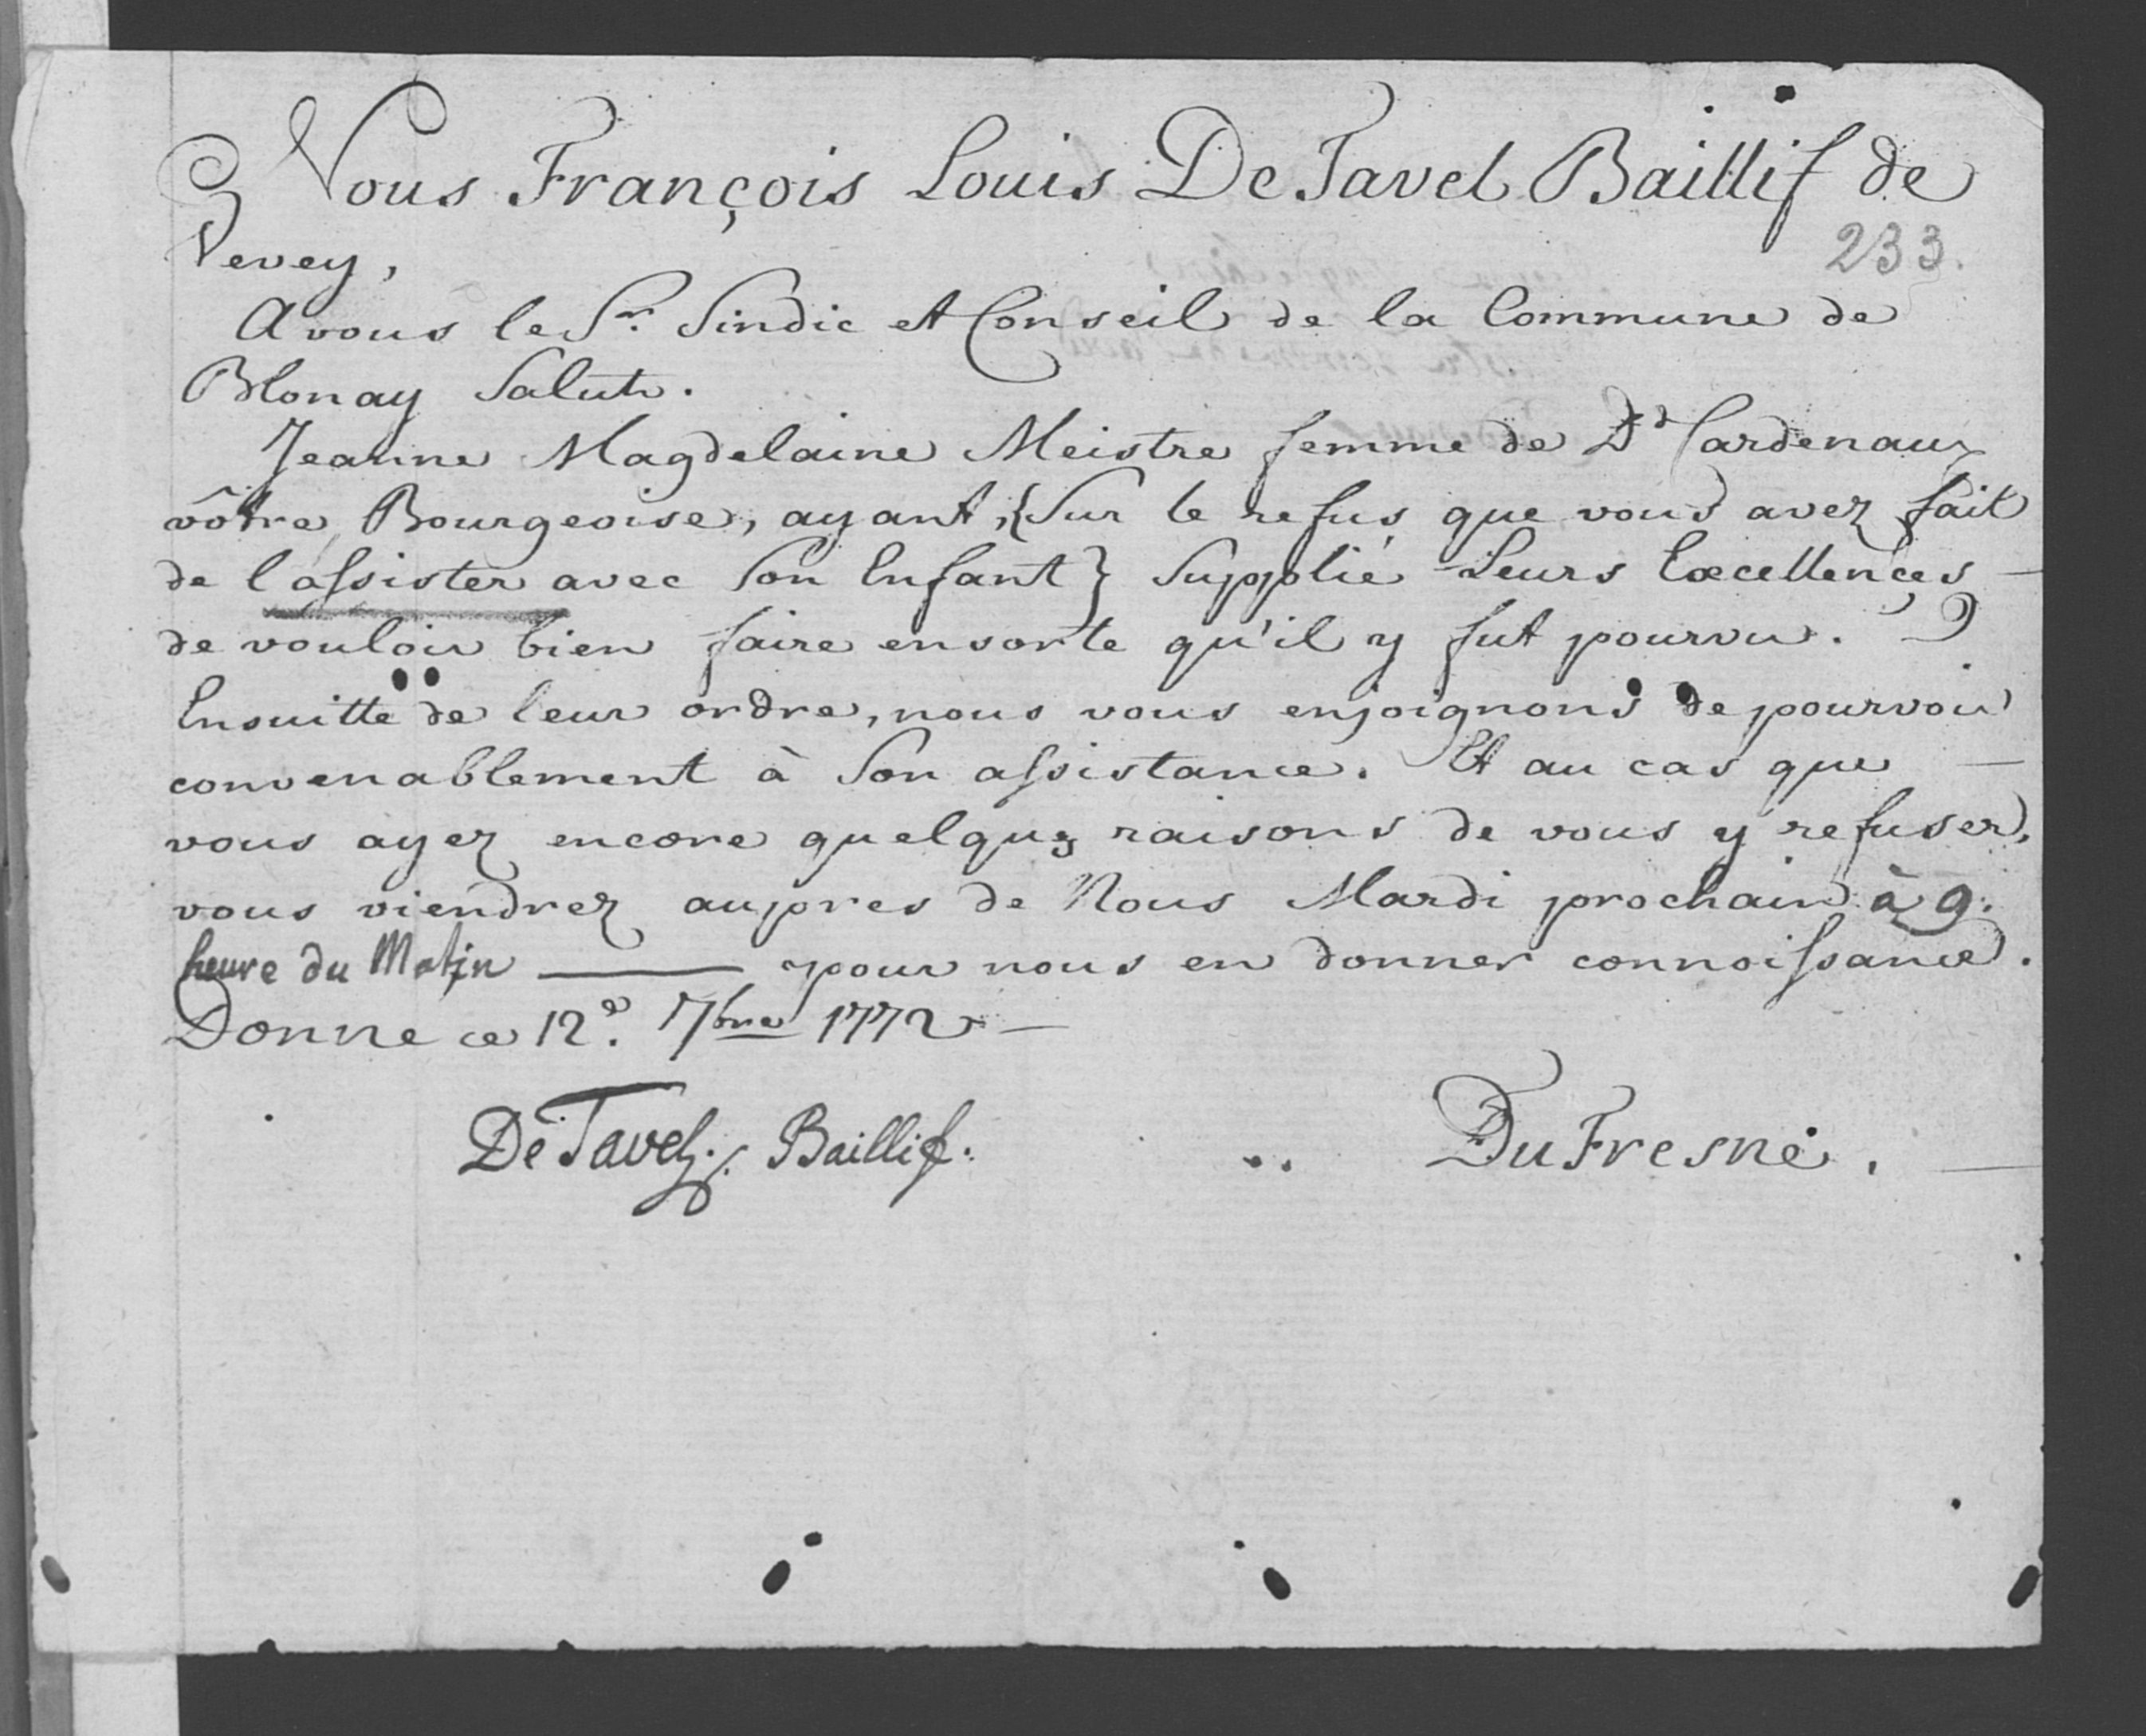 Nous François Louis De Tavel Baillif de
Vevey,
233.
A vous le Sr. Sindic et Conseil de la Commune de
Blonay Salut.
Jeanne Magdelaine Meistre femme de Dd Cardenaux
vôtre Bourgeoise, ayant, {Sur le refus que vous avez fait
de l'assister avec Son Enfant} Supplié Leurs Excellences
de vouloir bien faire ensorte qu'il y fut pourvu.
Ensuitte de leur ordre, nous vous enjoignons de pourvoir
convenablement à Son assistance. Et au cas que
vous ayez encore quelques raisons de vous y refuser,
vous viendrez aupres de Nous Mardi prochain à 9.
heure du Matin pour nous en donner connoissance.
Donne ce 12e. 7bre 1772
De Tavel. Baillif.
DuFresne.